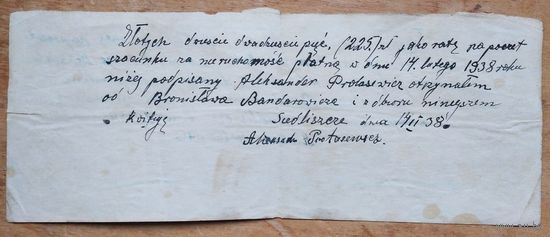 Złotych dwieście dwadzieścia pięć, (225) zł jako ratę na poczet
szacunku za nieruchomość płatną w dniu 14. lutego 1938 roku
niżej podpisany Aleksander Protasewicz otrzymałem
od Bronisława Bandarowicza i z odbioru niniejszem
kwituję Siedliszcze dnia 14/II 38.
Aleksander Protasewicz.